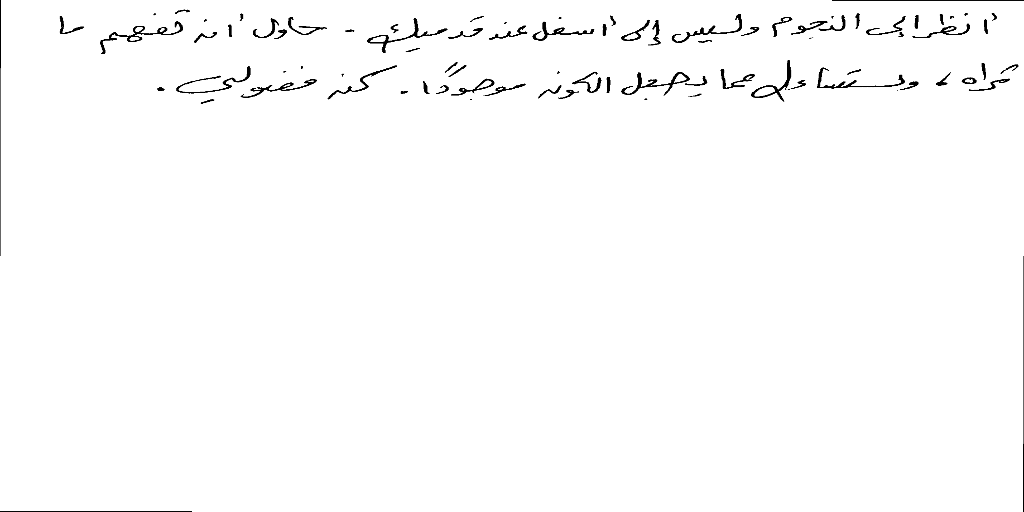 أنظر الى النجوم وليس إلى أسفل عند قدميك. حاول أن تفهم ما
تراه، وتساءل عما يجعل الكون موجودًا. كن فضولي.